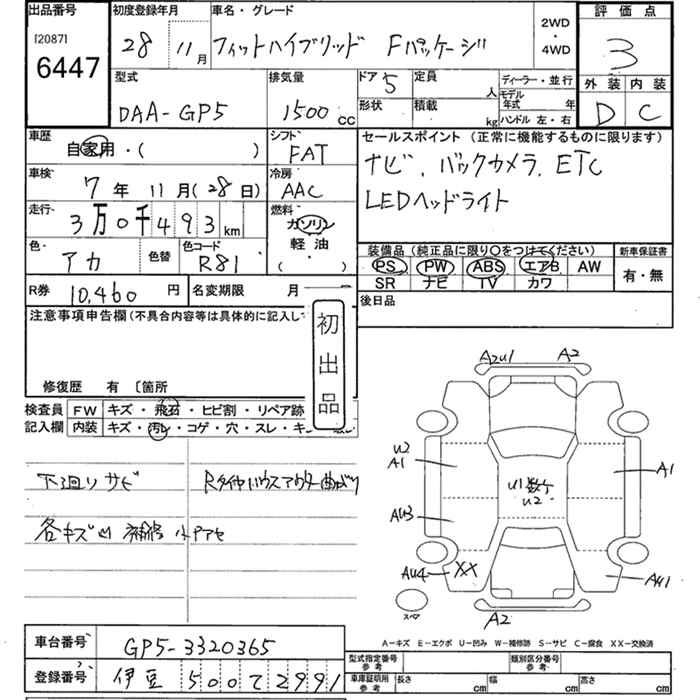 出品番号 初度登録年月 車名・グレード 2WD・4WD 評価点
[2087] 28 11月 フィットハイブリッド Fパッケージ 3
6447
型式 排気量 ドア 5 定員 人 ディーラー・並行 外装 内装
DAA-GP5 1500 CC 形状 積載 kg モデル年式 年 D C
ハンドル 左・右
車歴 自家用・( ) シフト FAT セールスポイント (正常に機能するものに限ります)
車検 7年 11月(28日) 冷房 AAC ナビ、バックカメラ、ETC
走行 3万0千493km 燃料 ガソリン LEDヘッドライト
色 アカ 色替 色コード R81 軽油 ( ) 装備品 (純正品に限り○をつけてください) 新車保証書
PS PW ABS エアB AW 有・無
SR ナビ TV カワ
R券 10,460円 名変期限 月 後日品
注意事項申告欄(不具合内容等は具体的に記入し 初出品
修復歴 有 〔箇所
検査員 FW キズ・飛石・ヒビ割・リペア跡
記入欄 内装 キズ・汚レ・コゲ・穴・スレ・キ
下廻りサビ Rタイヤハウスアウター曲がり
各キズ凹 補修
A2U1 A2
U2
A1 A1
U1数ケ
U2
AU3
AU4 XX AU1
スペア A2
A-キズ E-エクボ U-凹み W-補修跡 S-サビ C-腐食 XX-交換済
車台番号 GP5-3320365
登録番号 伊豆 500て2991
型式指定番号 参考 類別区分番号 参考
車庫証明用 参考 長さ cm 幅 cm 高さ cm